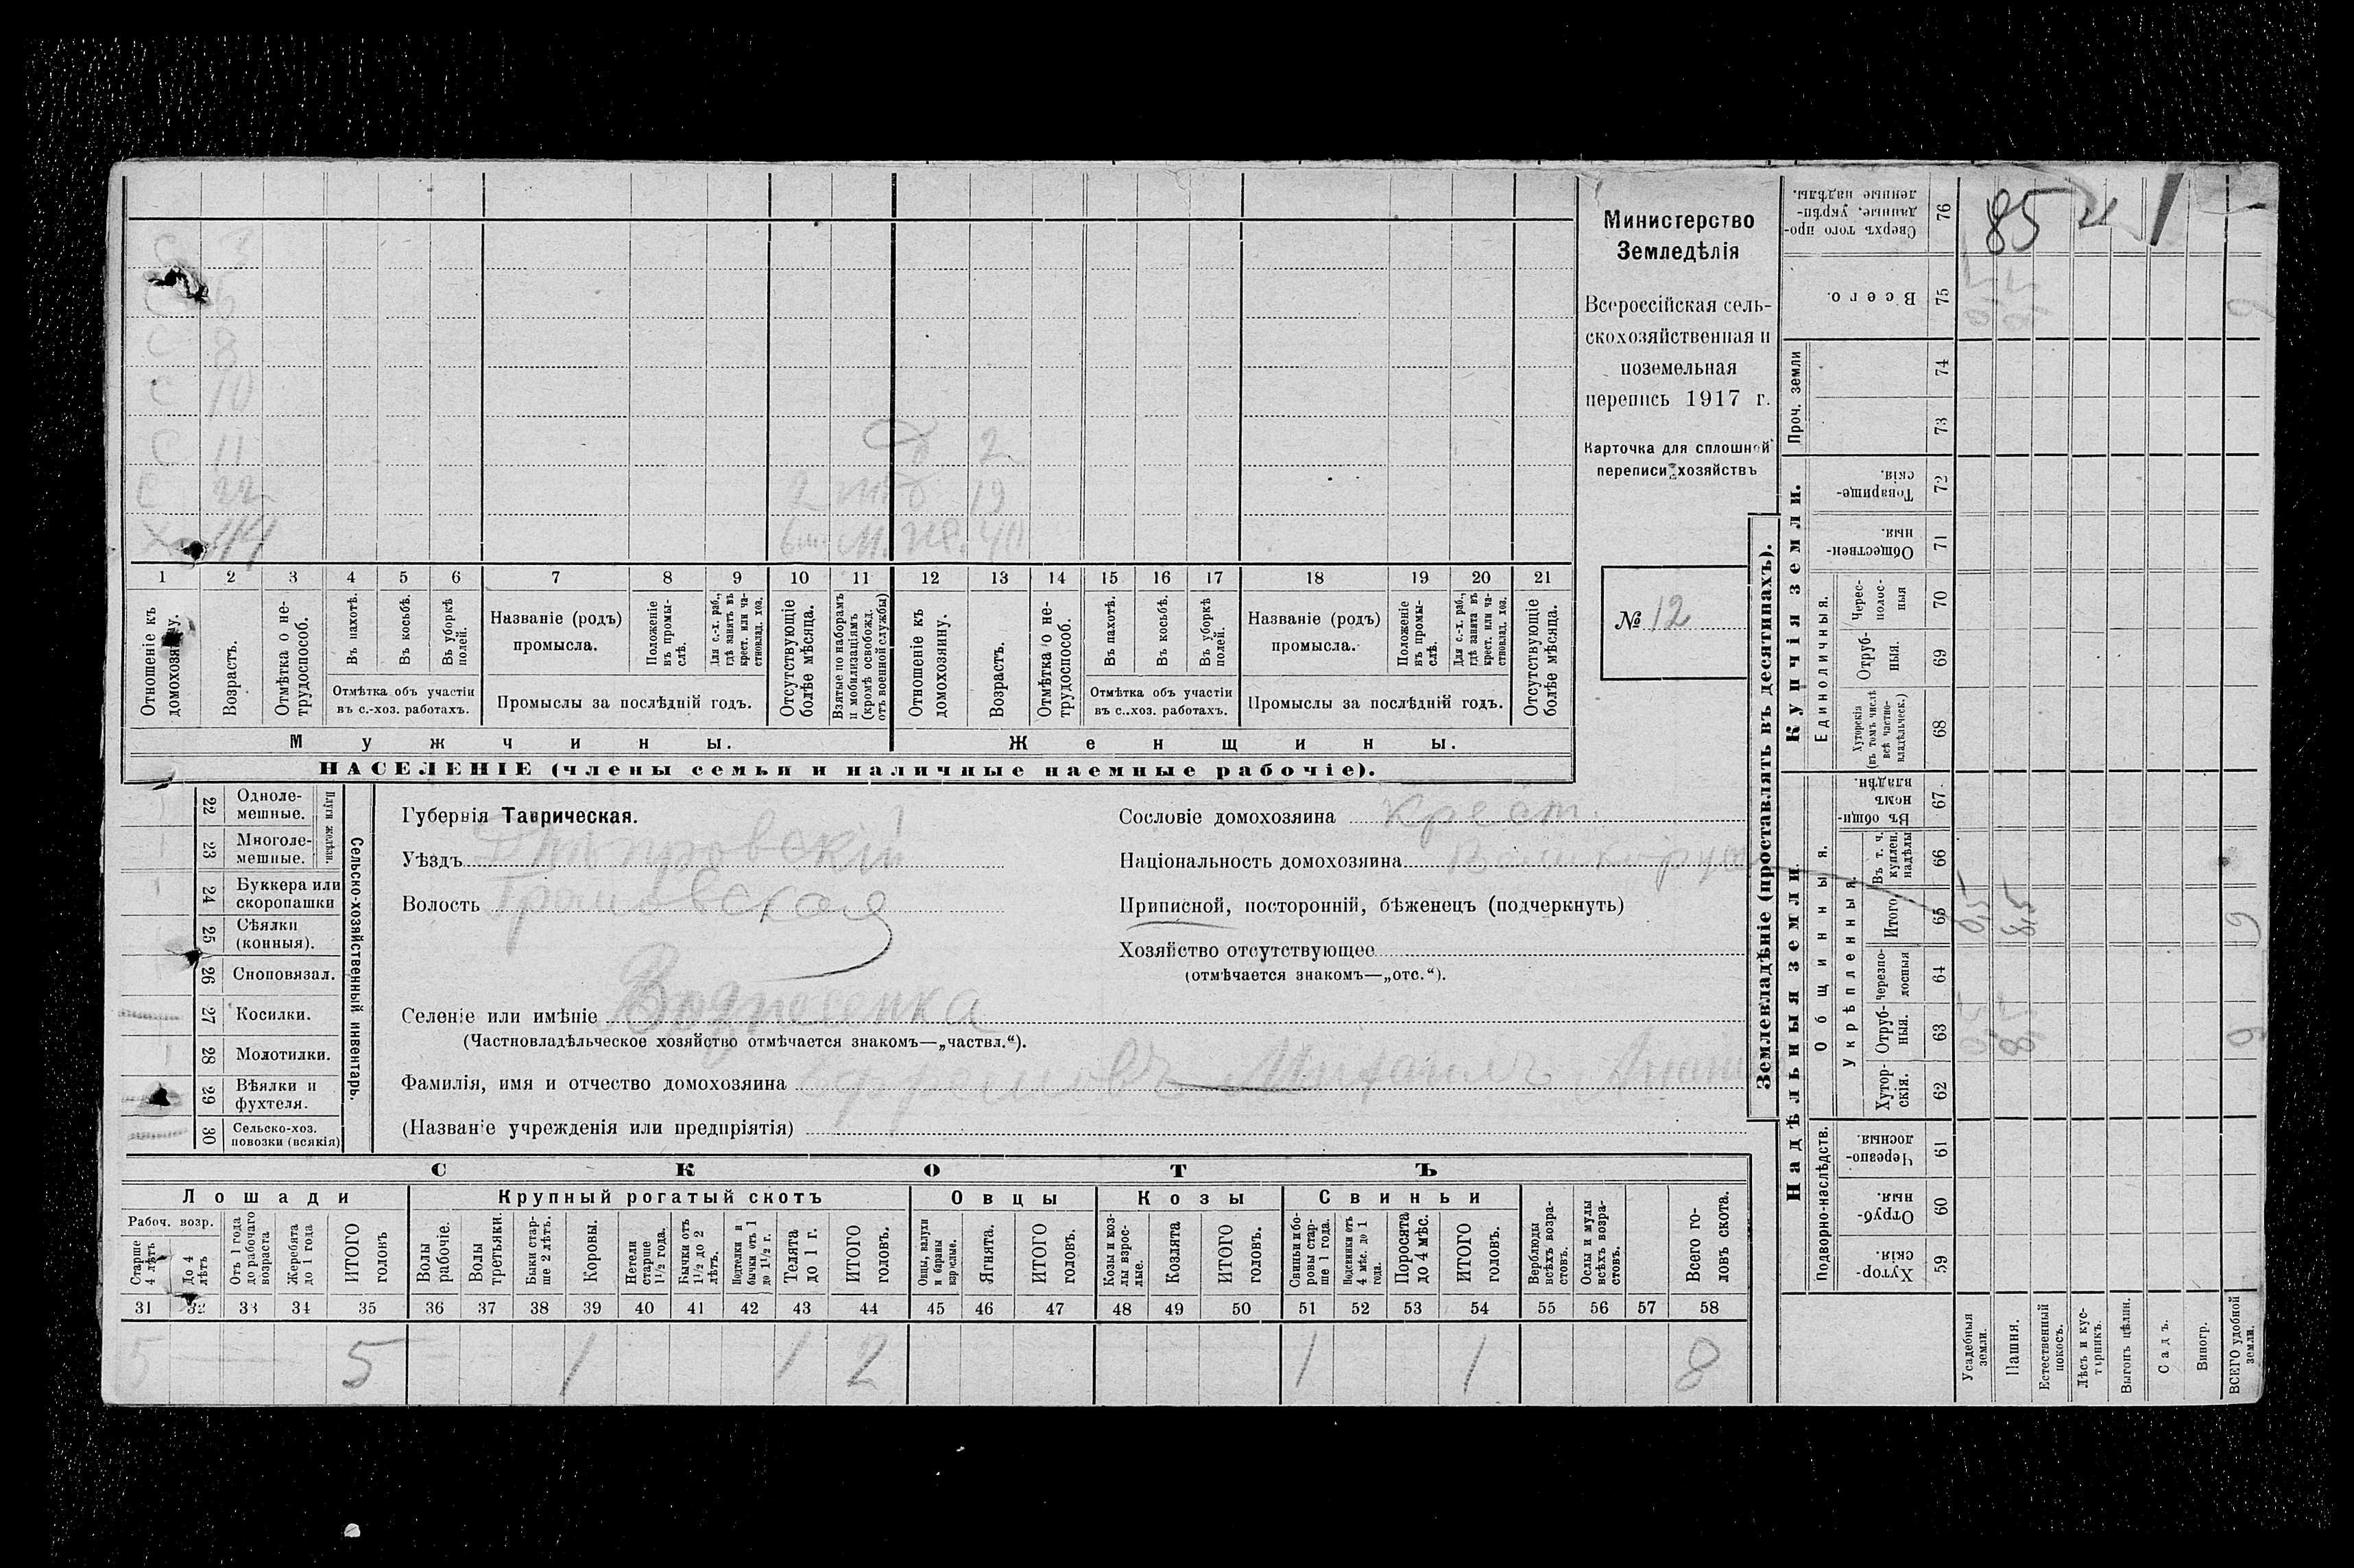 С 7
С 6
С 8
С 10
С 11 2
С 22 2 19
Х 44 6 м. М. 40
1 2 3 4 5 6 7 8 9 10 11 12 13 14 15 16 17 18 19 20 21
Отношеніе къ домохозяину.
Возрастъ.
Отмѣтка о не-
трудоспособ.
Въ пахотѣ.
Въ косьбѣ.
Въ уборкѣ
полей.
Отмѣтка объ участіи
въ с.-хоз. работахъ.
Названіе (родъ)
промысла.
Положеніе
въ промы-
слѣ.
Для с.-х. раб.,
гдѣ занятъ въ
крест. или ча-
стновлад. хоз.
Промыслы за послѣдній годъ.
Отсутствующіе
болѣе мѣсяца.
Взятые по наборамъ
и мобилизаціямъ
(кромѣ освобожд.
отъ военной службы)
Отношеніе къ
домохозяину.
Возрастъ.
Отмѣтка о не-
трудоспособ.
Въ пахотѣ.
Въ косьбѣ.
Въ уборкѣ
полей.
Отмѣтка объ участіи
въ с..хоз. работахъ.
Названіе (родъ)
промысла.
Положеніе
въ промы-
слѣ.
Для с.-х. раб.,
гдѣ занята въ
крест. или ча-
стновлад. хоз.
Промыслы за послѣдній годъ.
Отсутствующіе
болѣе мѣсяца.
Мужчины.
Женщины.
НАСЕЛЕНІЕ (члены семьи и наличные наемные рабочіе).
Министерство
Земледѣлія
Всероссійская сель-
скохозяйственная и
поземельная
перепись 1917 г.
Карточка для сплошной
переписи хозяйствъ
№ 12
22 Одноле-
мешные.
23 Многоле-
мешные.
Плуги желѣзн.
24 Буккера или
скоропашки
25 Сѣялки
(конныя).
26 Сноповязал.
27 Косилки.
28 Молотилки.
29 Вѣялки и
фухтеля.
30 Сельско-хоз.
повозки (всякія)
Сельско-хозяйственный инвентарь.
Губернія Таврическая.
Уѣздъ Днѣпровскій
Волость
Селеніе или имѣніе Вознесенка
(Частновладѣльческое хозяйство отмѣчается знакомъ—„частвл.“).
Фамилія, имя и отчество домохозяина Ефимовъ Михаилъ
(Названіе учрежденія или предпріятія)
Сословіе домохозяина Крест.
Національность домохозяина
Приписной, посторонній, бѣженецъ (подчеркнуть)
Хозяйство отсутствующее
(отмѣчается знакомъ—„отс.“).
СКОТЪ
Лошади
Крупный рогатый скотъ
Овцы
Козы
Свиньи
Рабоч. возр.
Старше
4 лѣтъ
До 4
лѣтъ
Отъ 1 года
до рабочаго
возраста
Жеребята
до 1 года
ИТОГО
головъ
Волы
рабочіе.
Волы
третьяки.
Быки стар-
ше 2 лѣтъ.
Коровы.
Нетели
старше
1 1/2 года.
Бычки отъ
1 1/2 до 2
лѣтъ.
Подтелки и
бычки отъ 1
до 1 1/2 г.
Телята
до 1 г.
ИТОГО
головъ.
Овцы, валухи
и бараны
взрослые.
Ягнята.
ИТОГО
головъ.
Козы и коз-
лы взрос-
лые.
Козлята
ИТОГО
головъ.
Свиньи и бо-
ровы стар-
ше 1 года.
Подсвинки отъ
4 мѣс. до 1
года.
Поросята
до 4 мѣс.
ИТОГО
головъ.
Верблюды
всѣхъ возра-
стовъ.
Ослы и мулы
всѣхъ возра-
стовъ.
Всего го-
ловъ скота.
31 32 33 34 35 36 37 38 39 40 41 42 43 44 45 46 47 48 49 50 51 52 53 54 55 56 57 58
5 5 1 1 2 1 1 8
Землевладѣніе (проставлять въ десятинахъ).
Надѣльныя земли.
Купчія земли.
Проч. земли
Подворно-наслѣдств.
Общинныя.
Укрѣпленныя.
Единоличныя.
Хутор-
скія. 59
Отруб-
ныя. 60
Черезпо-
лосныя. 61
Хутор-
скія. 62
Отруб-
ныя. 63
Черезпо-
лосныя 64
Итого 65
Въ т. ч.
куплен.
надѣлы 66
Въ общин-
номъ
владѣн. 67
Хуторскія
(въ томъ числѣ
всѣ частно-
владѣльческ.) 68
Отруб-
ныя. 69
Черес-
полос-
ныя 70
Обществен-
ныя 71
Товарище-
скія. 72
73
74
Всего. 75
Сверхъ того про-
данные, укрѣп-
ленные надѣлы. 76
Усадебныя
земли.
Пашня.
Естественный
покосъ.
Лѣсъ и кус-
тарникъ.
Выгонъ цѣлин.
Садъ.
Виногр.
ВСЕГО удобной
земли.
0,5 8,5 9
0,5 8,5 9
0,5 8,5 9
85 1